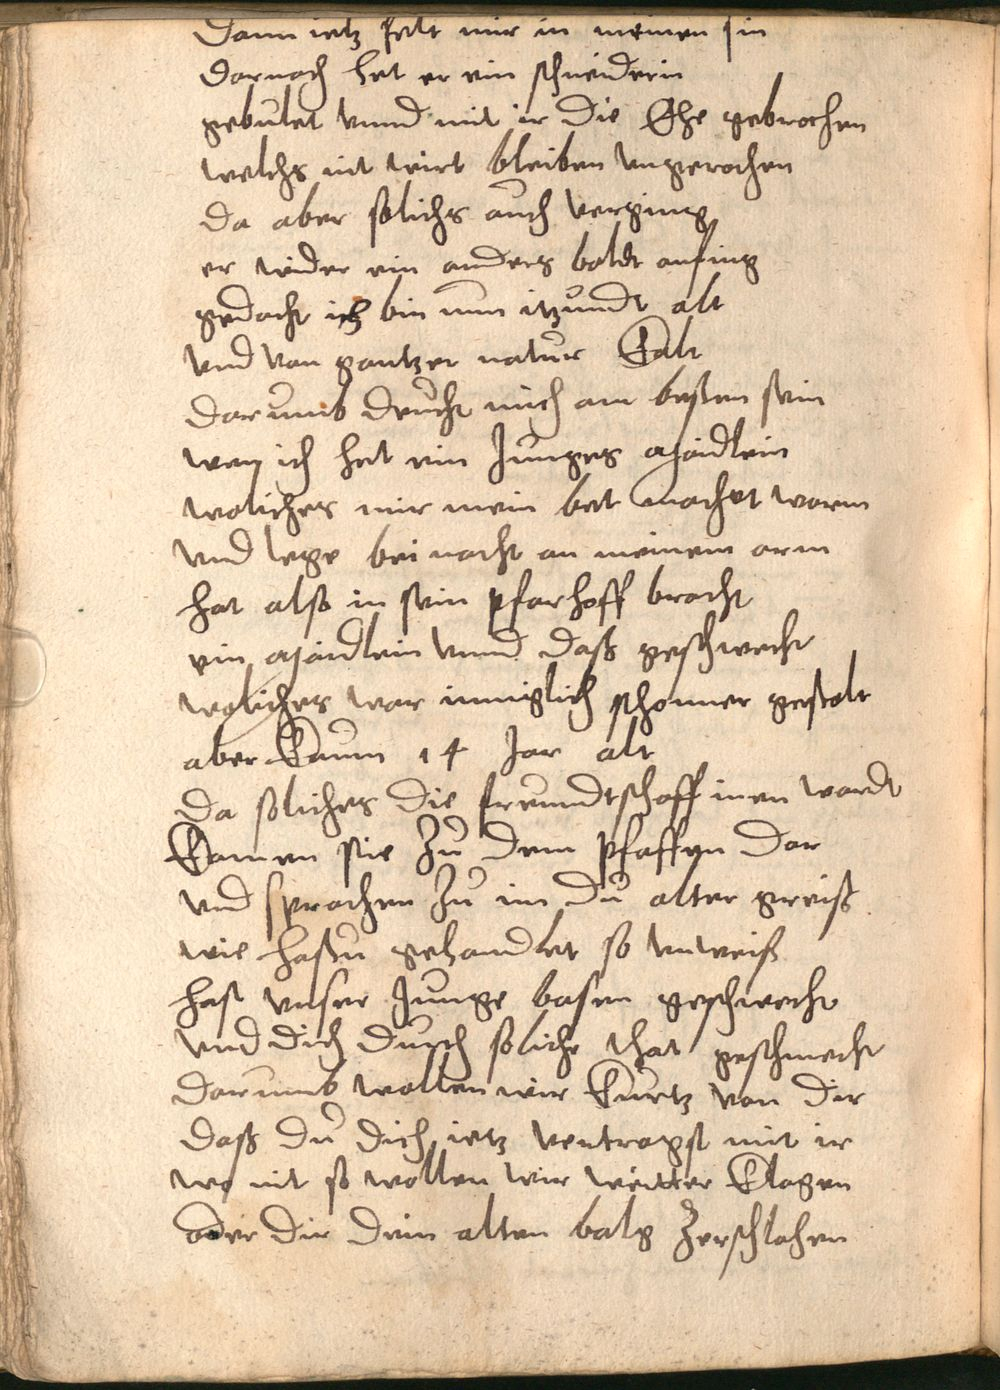 Dann ietz felt mir in meinen sin
darnach het er ein schneiderin
gebulet vnnd mit ir die Ehe gebrochen
welchs nit wirt bleiben vngerochen
da aber solichs auch verging
er wider ein anders baldt anfing
gedacht ich bin nun itzundt alt
vnd von gantzer natur Calt
darumb deucht mich am besten sein
wen ich het ein Junges Maidlein
woliches mir mein bet machet warm
vnd lege bei nacht an meinem arm
hat also in sein pfarhoff bracht
ein Maidlein vnnd daß geschwecht
woliches war inniglich schonner gestalt
aber Caum 14 Jar alt
da soliches die freundtschafft innen wardt
Camen sie Zu dem pfaffen dar
vnd sprachen Zu im du alter greiß
wie hastu gehandlet so vnweiß
hast vnser Junge basen geschwecht
vnd dich durch soliche that geschmecht
darumb wollen wir Curtz von dir
daß du dich ietz vertragst mit ir
wo nit so wollen wir weitter Clagen
oder dir dein alten balg Zerschlahen